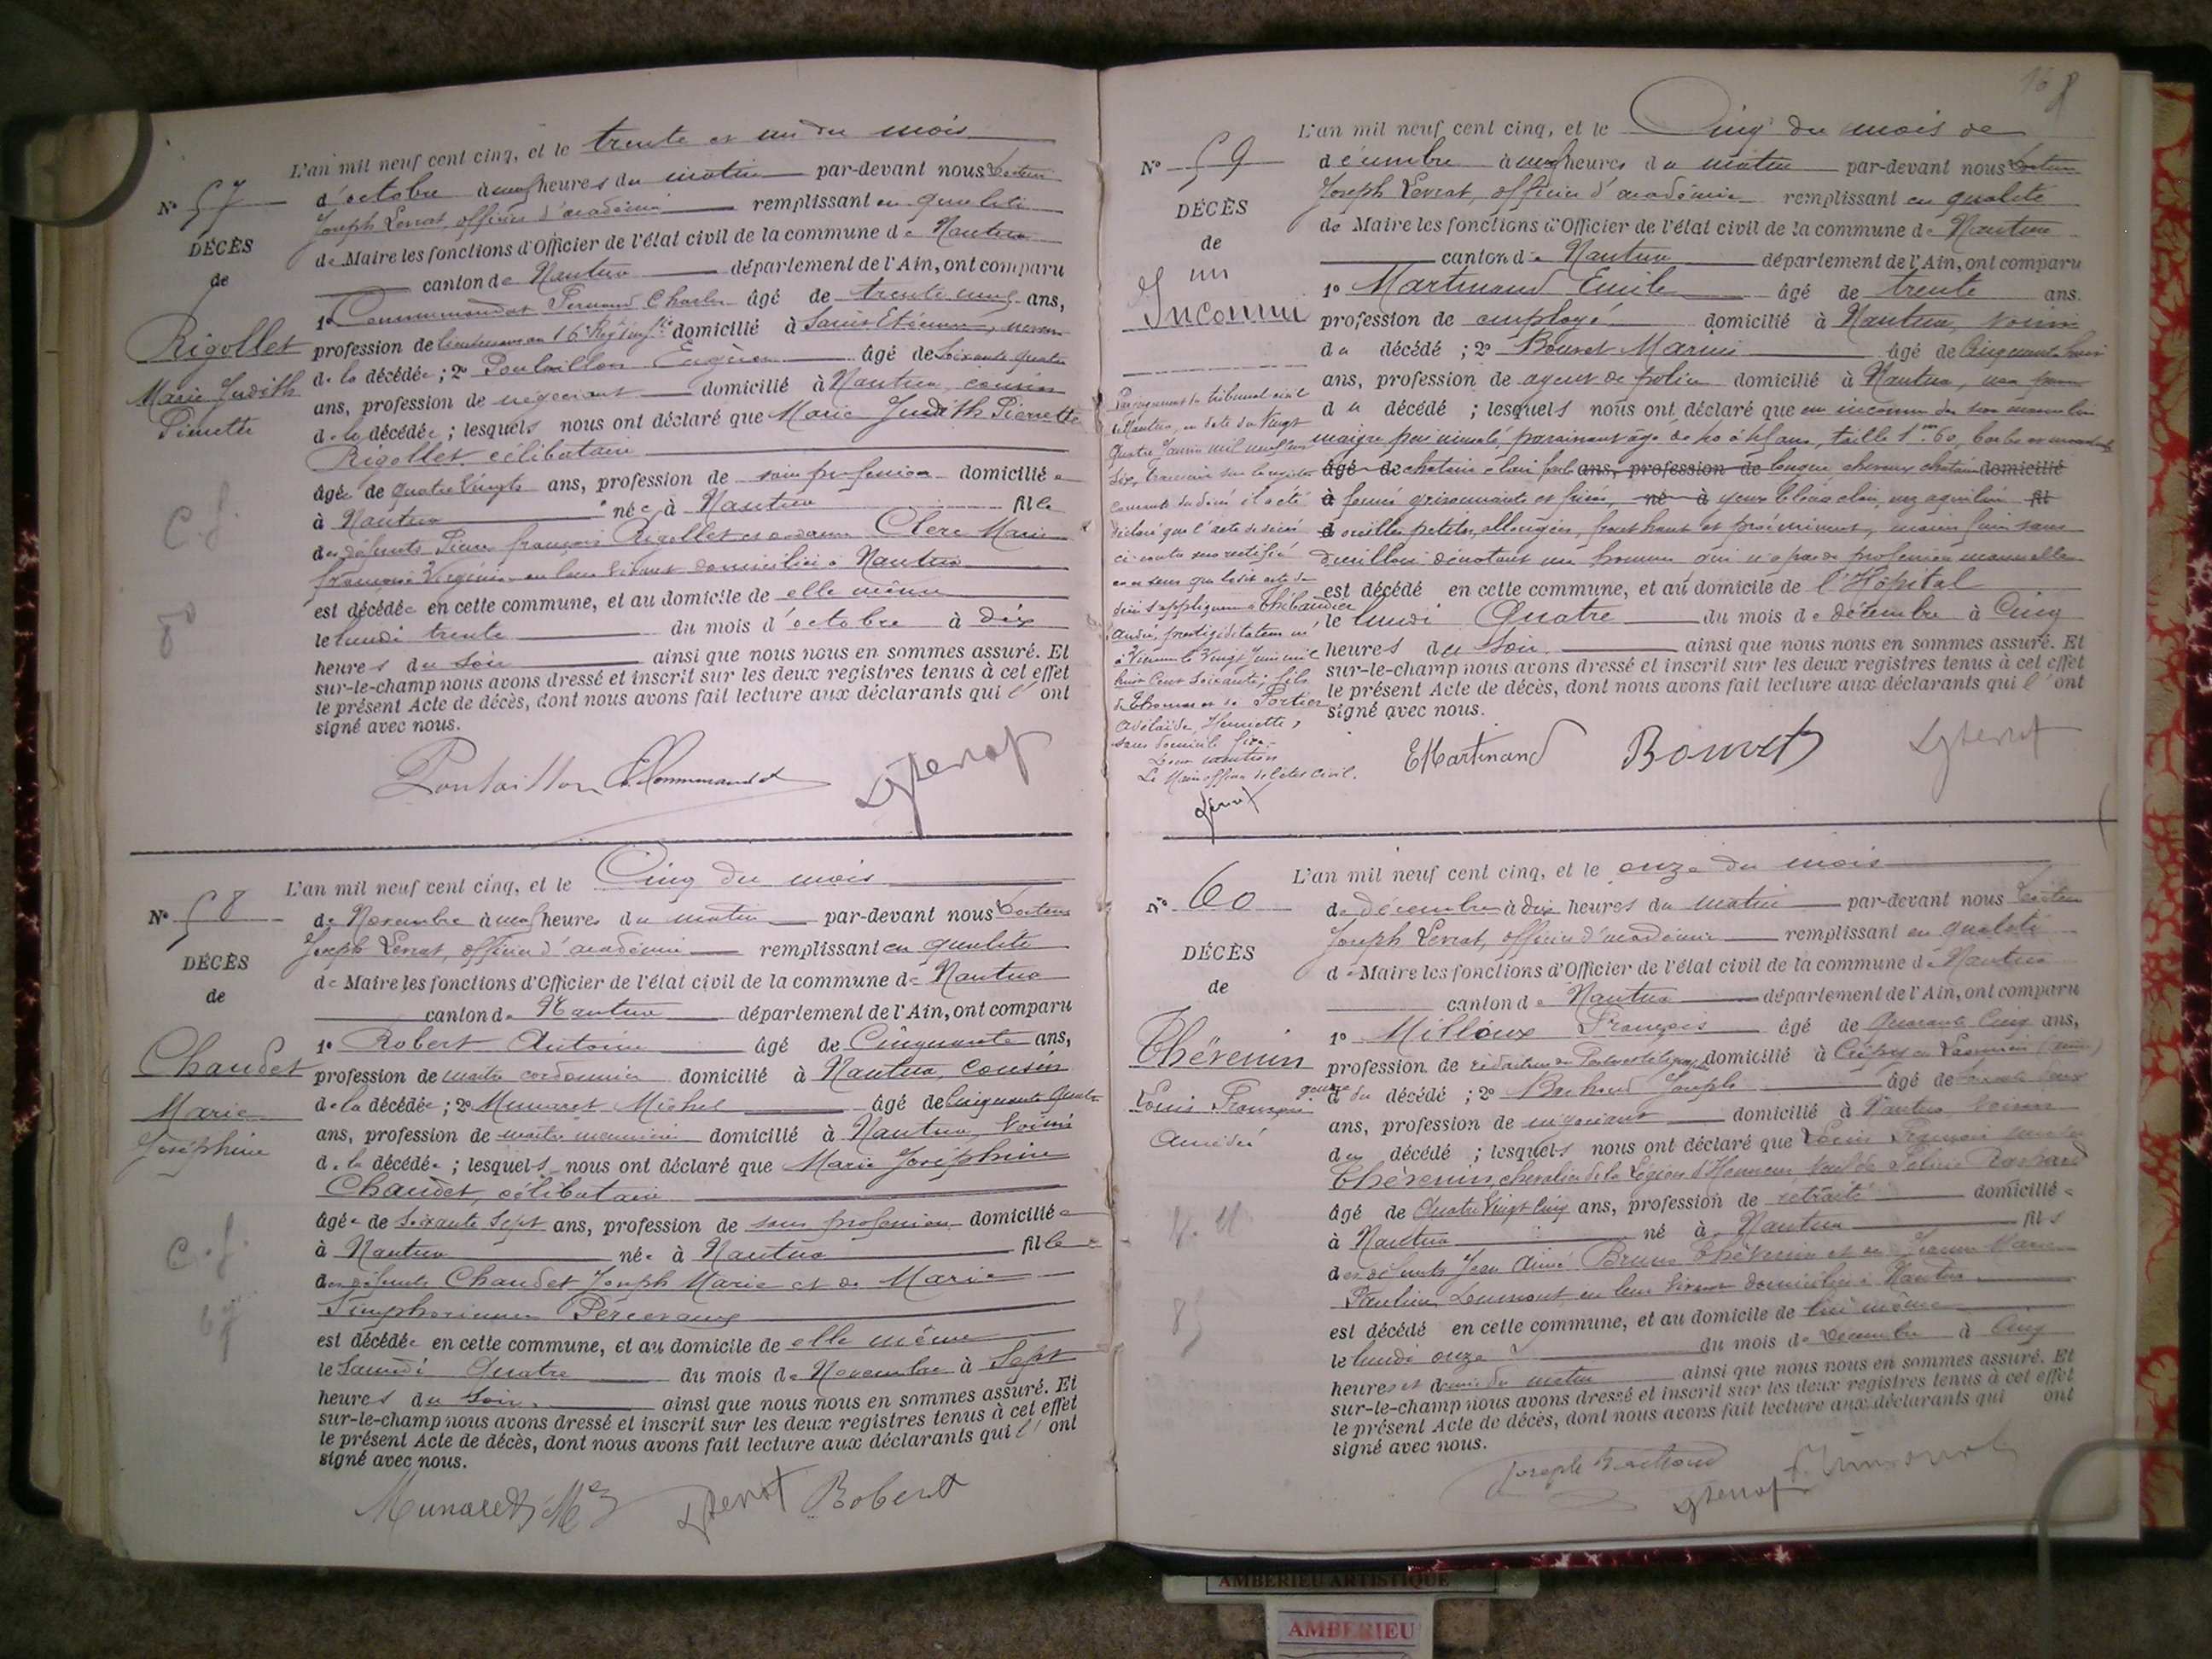 L'an mil neuf cent cinq, et le trente et un du mois
N° 57
d'octobre à neuf heures du matin par-devant nous Docteur
DÉCÈS
Joseph Levrat, officier d'académie remplissant en qualité
de
de Maire les fonctions d'Officier de l'état civil de la commune de Nantua
canton de Nantua département de l'Ain, ont comparu
1° Commandat Fernand Charles âgé de trente cinq ans,
Rigollet
profession de lieutenant au 16e domicilié à Saint Etienne, neveu
Marie Judith
de la décédée; 2° Poulaillon Eugène âgé de Soixante quatre
Pierrette
ans, profession de négociant domicilié à Nantua cousin
de la décédée; lesquels nous ont déclaré que Marie Judith Pierrette
Rigollet célibataire
âgée de quatre vingts ans, profession de sans profession domiciliée
à Nantua née à Nantua fille
C. f.
des défunts Pierre françois Rigollet et de dame Clerc Marie
françoise Virginie en leur vivant domiciliés à Nantua
80
est décédée en cette commune, et au domicile de elle même
le lundi trente du mois d'octobre à dix
heures du soir ainsi que nous nous en sommes assuré. Et
sur-le-champ nous avons dressé et inscrit sur les deux registres tenus à cet effet
le présent Acte de décès, dont nous avons fait lecture aux déclarants qui l'ont
signé avec nous.
Poulaillon Commandat Levrat
L'an mil neuf cent cinq, et le Cinq du mois
N° 58
de Novembre à neuf heures du matin par-devant nous Docteur
DÉCÈS
Joseph Levrat, officier d'académie remplissant en qualité
de
de Maire les fonctions d'Officier de l'état civil de la commune de Nantua
canton de Nantua département de l'Ain, ont comparu
1° Robert Antoine âgé de Cinquante ans,
Chaudet
profession de maître cordonnier domicilié à Nantua, cousin
Marie
de la décédée; 2° Munaret Michel âgé de Cinquante quatre
Joséphine
ans, profession de maître menuisier domicilié à Nantua, voisin
de la décédée; lesquels nous ont déclaré que Marie Joséphine
Chaudet, célibataire
âgée de Soixante Sept ans, profession de sans profession domiciliée
C. f.
à Nantua née à Nantua fille
des défunts Chaudet Joseph Marie et de Marie
67
Simphorienne
est décédée en cette commune, et au domicile de elle même
le Samedi Quatre du mois de Novembre à Sept
heures du soir. ainsi que nous nous en sommes assuré. Et
sur-le-champ nous avons dressé et inscrit sur les deux registres tenus à cet effet
le présent Acte de décès, dont nous avons fait lecture aux déclarants qui l'ont
signé avec nous.
Munaret Levrat Robert
168
L'an mil neuf cent cinq, et le Cinq du mois de
N° 59
décembre à neuf heures du matin par-devant nous Docteur
DÉCÈS
Joseph Levrat, officier d'académie remplissant en qualité
de
de Maire les fonctions d'Officier de l'état civil de la commune de Nantua
un
canton de Nantua département de l'Ain, ont comparu
Inconnu
1° Martinand Emile âgé de trente ans.
profession de employé domicilié à Nantua, voisin
du décédé; 2° Bouvet Marius âgé de Cinquante huit
ans, profession de agent de police domicilié à Nantua, non parent
du décédé; lesquels nous ont déclaré que un inconnu du sexe masculin
maigre peu musclé, paraissant âgé de 40 à 45 ans, taille 1m60, barbe et moustache
âgé de chatain clair ans, profession de longue, cheveux chatain domicilié
à foncé grisonnants et frisés, né à yeux bleus clair, nez aquilin fil
d oreilles petites, allongées, front haut et proéminent, mains fines sans
durillon dénotant un homme qui n'a pas de profession manuelle
est décédé en cette commune, et au domicile de l'Hôpital
le lundi Quatre du mois de décembre à Cinq
heures du soir. ainsi que nous nous en sommes assuré. Et
sur-le-champ nous avons dressé et inscrit sur les deux registres tenus à cet effet
le présent Acte de décès, dont nous avons fait lecture aux déclarants qui l'ont
signé avec nous.
EMartinand Bouvet Levrat
Par jugement du tribunal civil
de Nantua, en date du Vingt
quatre Janvier mil neuf cent
six, transcrit sur le registre
courant des décès il a été
déclaré que l'acte de décès
ci-contre sera rectifié
en ce sens que ledit acte de
décès s'appliquera à Thibaudier
André, prestidigitateur né
à Vienne le Vingt Juin mil
huit Cent Soixante, fils
de Thomas et de Portier
Adélaïde, Henriette,
sans domicile fixe.
Dont mention
Le Maire officier de l'état civil.
Levrat
L'an mil neuf cent cinq, et le onze du mois
N° 60
de décembre à dix heures du matin par-devant nous Docteur
DÉCÈS
Joseph Levrat, officier d'académie remplissant en qualité
de
de Maire les fonctions d'Officier de l'état civil de la commune de Nantua
canton de Nantua département de l'Ain, ont comparu
1° Milloux François âgé de Quarante Cinq ans,
Thévenin
profession de domicilié à Crépy en
Louis François
gendre du décédé; 2° Joseph âgé de
Amédée
ans, profession de négociant domicilié à Nantua voisin
du décédé; lesquels nous ont déclaré que Louis François Amédée
Thévenin, chevalier de la Légion d'Honneur, veuf de
âgé de Quatre Vingt Cinq ans, profession de retraité domicilié
à Nantua né à Nantua fils
des défunts Jean Aimé Bruno Thévenin et de Jeanne Marie
85
en leur vivant domiciliés à Nantua
est décédé en cette commune, et au domicile de lui même
le lundi onze du mois de Décembre à Cinq
heures et demie du matin ainsi que nous nous en sommes assuré. Et
sur-le-champ nous avons dressé et inscrit sur les deux registres tenus à cet effet
le présent Acte de décès, dont nous avons fait lecture aux déclarants qui ont
signé avec nous.
Joseph Levrat
AMBERIEU ARTISTIQUE
AMBERIEU